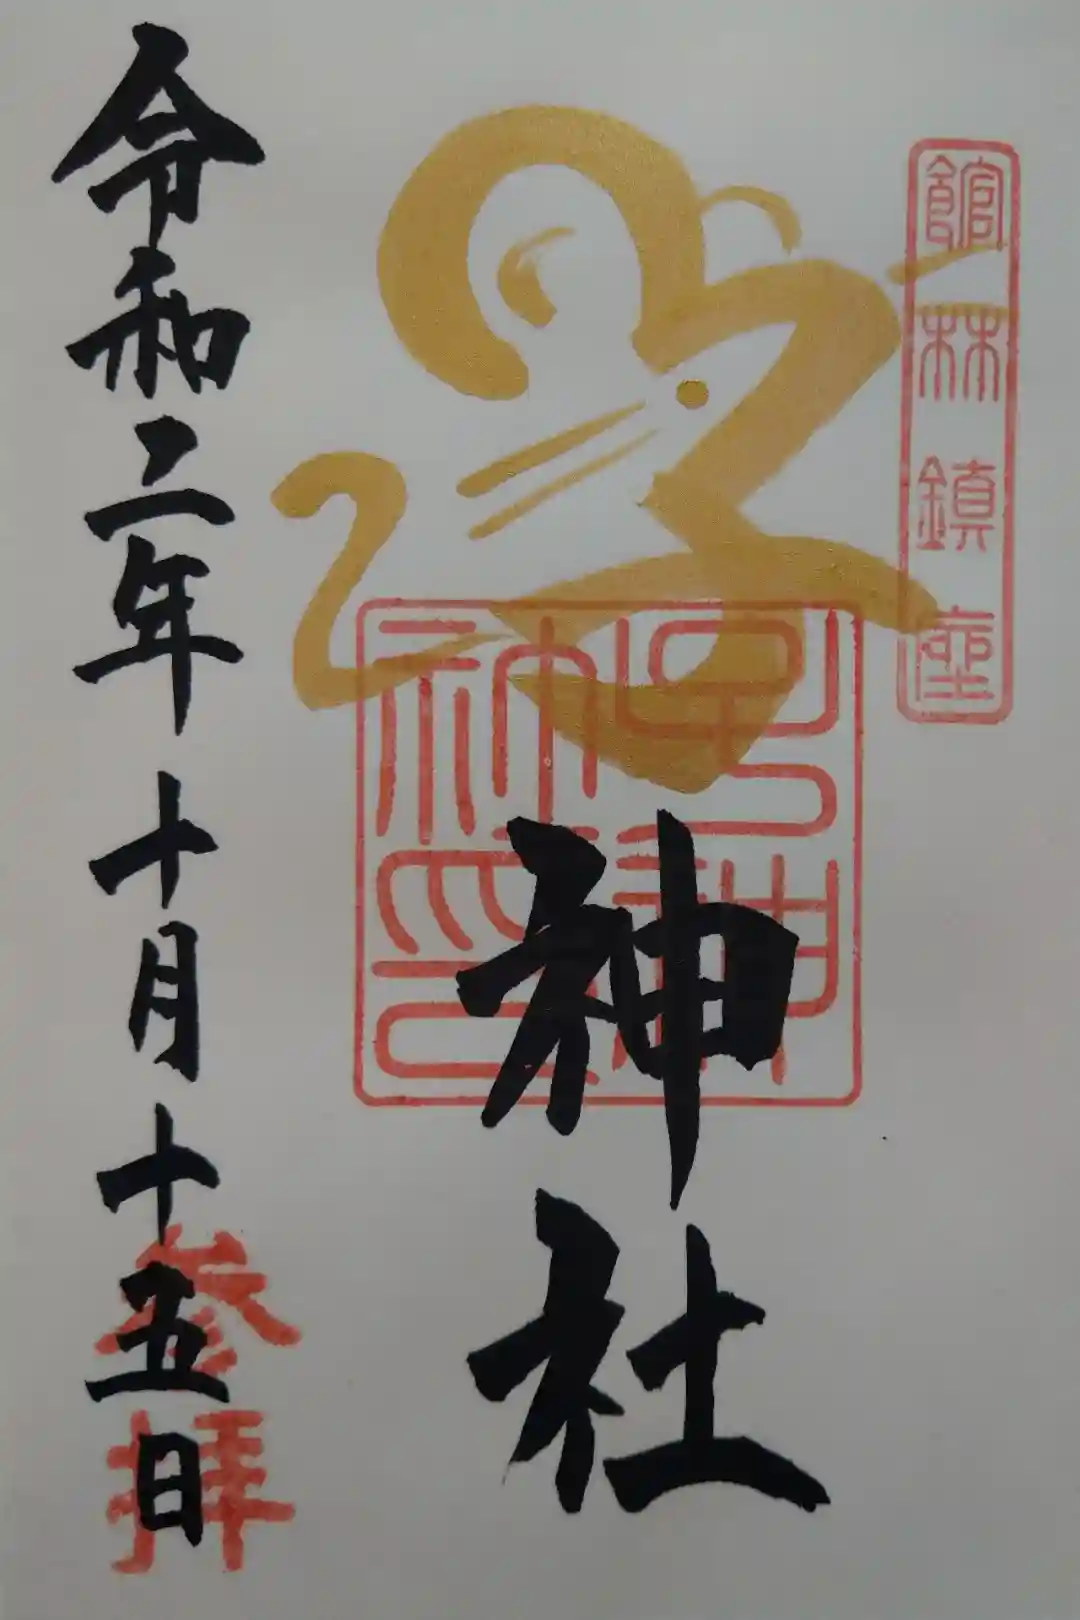 館林鎮座
子神社
子神神社印
参拝
令和二年十月十五日